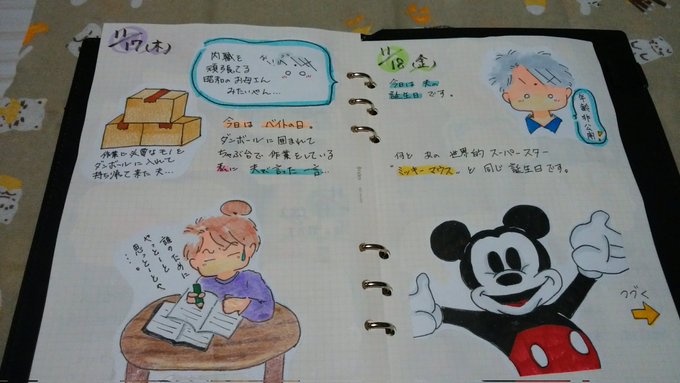 11/17(木)
内職を
頑張ってる
昭和のお母さん
みたいやん…
作業に必要なモノを
ダンボールに入れて
持ち帰って来た夫…
今日はバイトの日。
ダンボールに囲まれて
ちゃぶ台で作業をしている
私に夫が言った一言…
誰のために
やっとーと
やっとーとや
思っとーとや
…
11/18(金)
今日は夫の
誕生日です。
年齢非公開
何とあの世界的スーパースター
"ミッキーマウス"と同じ誕生日です。
つづく